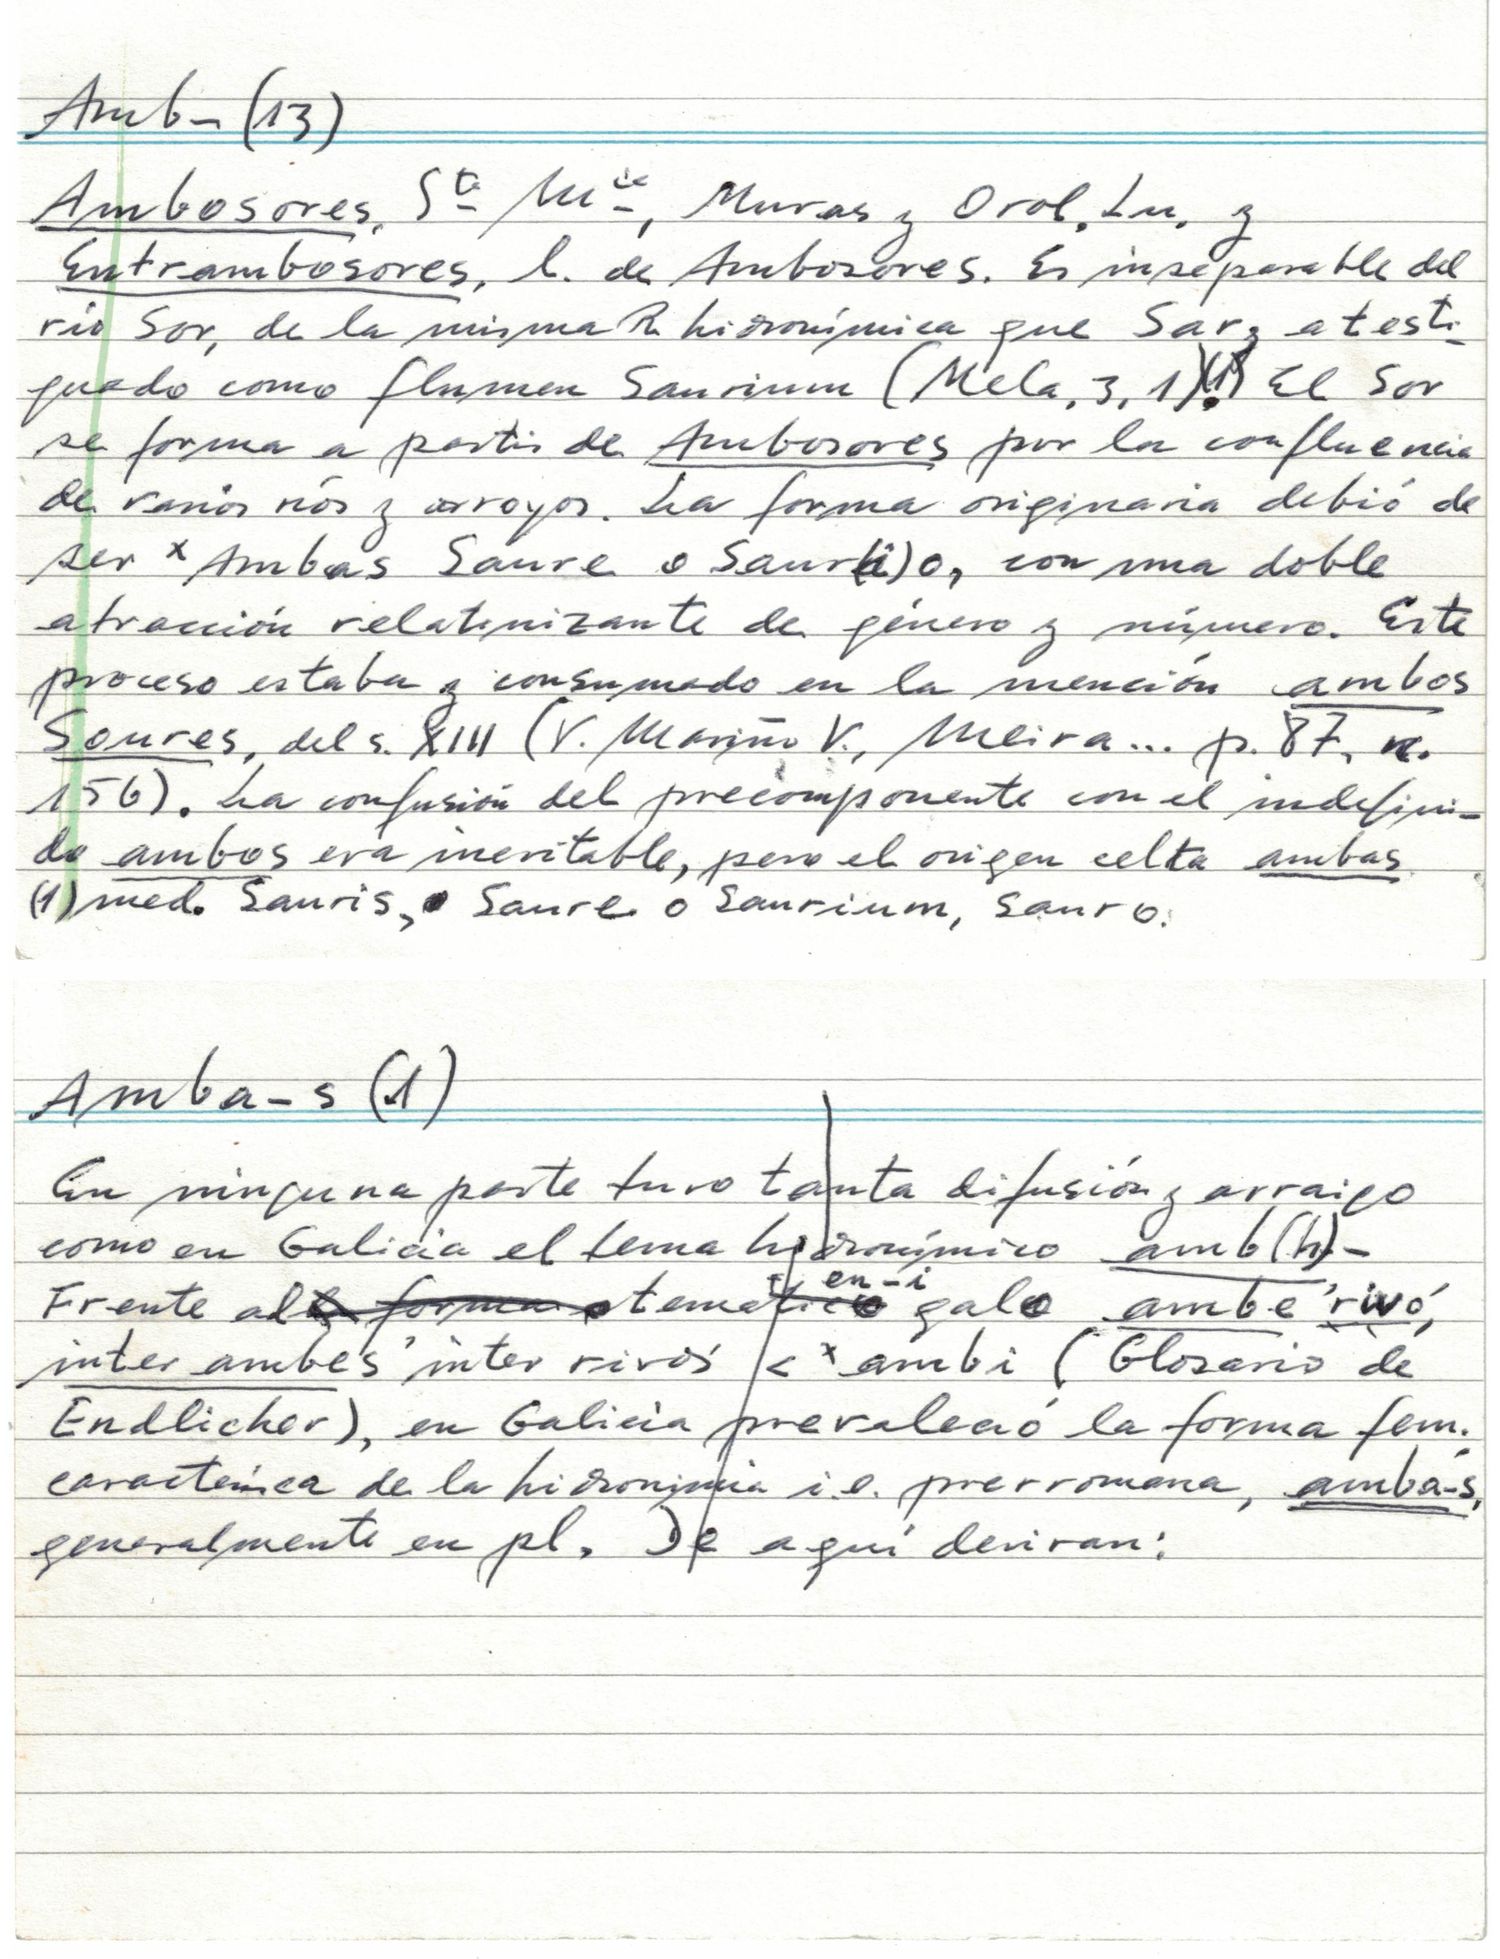 Amb- (13)
Ambosores, Sta Mía, Muras y Orol, Lu, y
Entrambosores, l. de Ambosores. Es inseparable del
río Sor, de la misma R hidronímica que Sar, atesti-
guado como flumen Saurium (Mela, 3, 1)(1) El Sor
se forma a partir de Ambosores por la confluencia
de varios ríos y arroyos. La forma originaria debió de
ser x Ambas Saure o Saur(i)o, con una doble
atracción relatinizante de género y número. Este
proceso estaba y consumado en la mención ambos
Soures, del s. XIII (V. Mariño V., Meira... p. 87, n.
156). La confusión del precomponente con el indefini-
do ambos era inevitable, pero el origen celta ambas
(1) med. Sauris, Saure o Saurium, Sauro.
Amba-s (1)
En ninguna parte tuvo tanta difusión y arraigo
como en Galicia el tema hidronímico amb(h)-
Frente al tema en -i galo ambe 'rivo',
inter ambes 'inter rivos' < x ambi (Glosario de
Endlicher), en Galicia prevaleció la forma fem.
característica de la hidronimia i.e. prerromana, amba-s,
generalmente en pl. De aquí derivan: